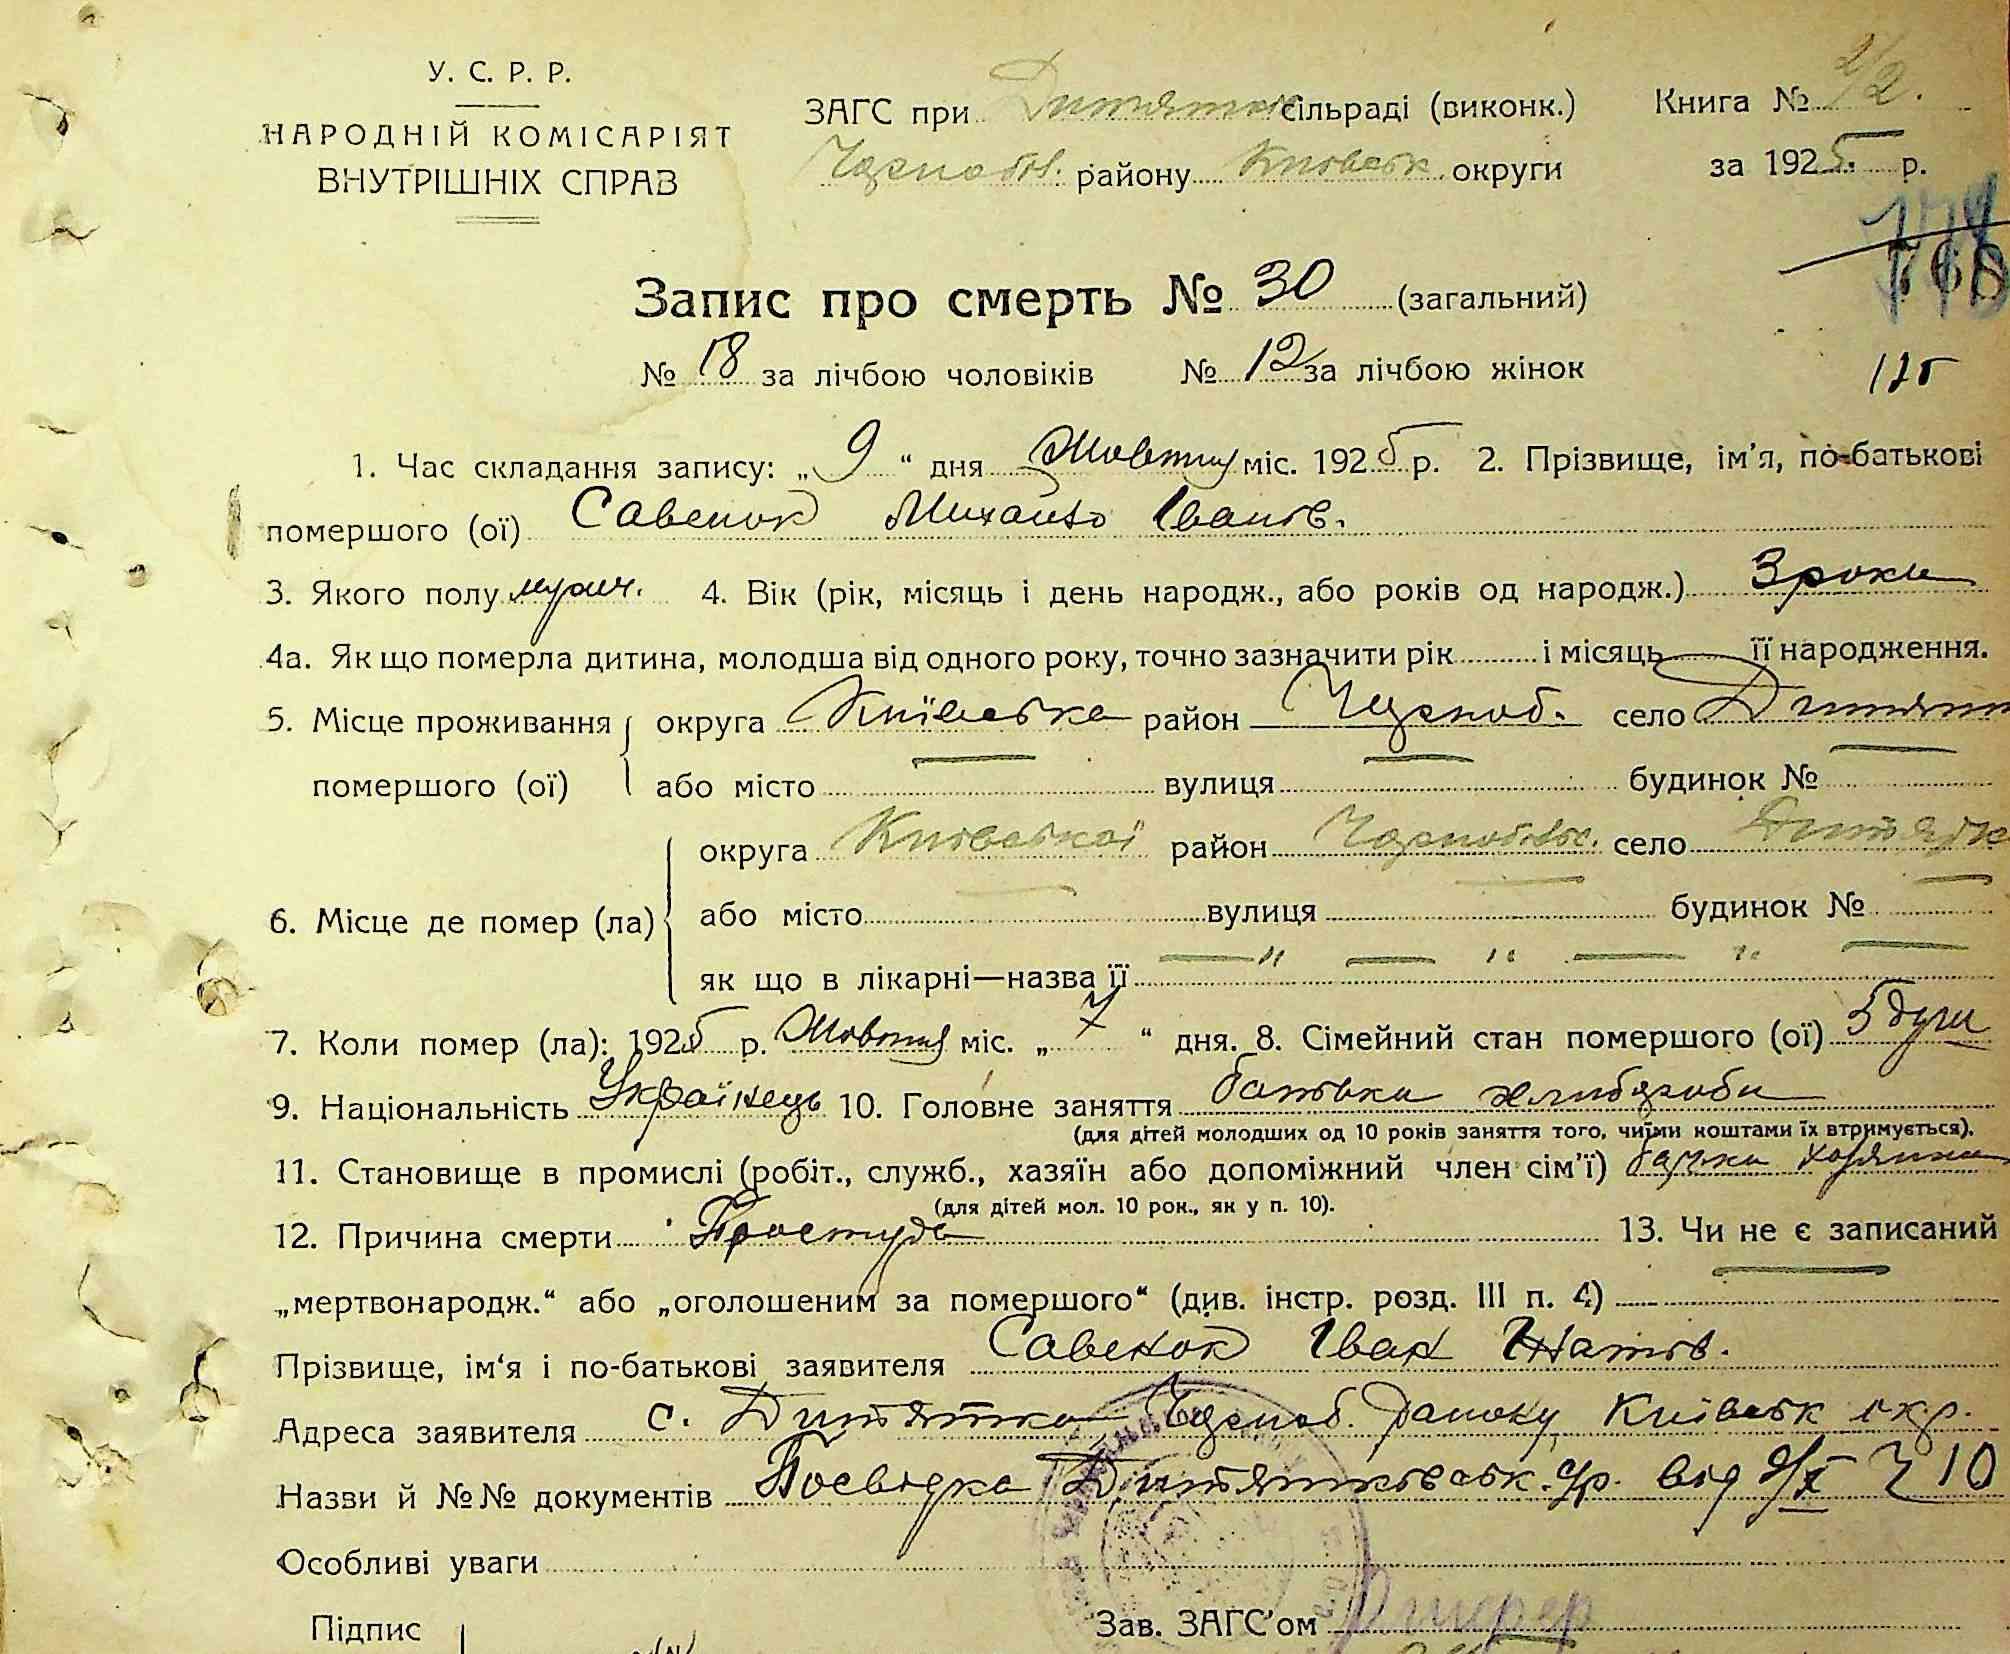 У. С. Р. Р.
НАРОДНІЙ КОМІСАРІЯТ
ВНУТРІШНІХ СПРАВ
ЗАГС при Дитятків сільраді (виконк.) Книга № 2/2.
Чорноб. району Київськ округи за 1925 р.
Запис про смерть № 30 (загальний)
№ 18 за лічбою чоловіків № 12 за лічбою жінок
1. Час складання запису: „ 9 “ дня Жовтня міс. 1925 р. 2. Прізвище, ім'я, по-батькові
помершого (ої) Савенок Михайло Іванів.
3. Якого полу мужч. 4. Вік (рік, місяць і день народж., або років од народж.) 3 роки
4а. Як що померла дитина, молодша від одного року, точно зазначити рік і місяць її народження.
5. Місце проживання помершого (ої) округа Київська район Чорноб. село Дитятки
або місто вулиця будинок №
6. Місце де помер (ла) округа Київської район Чорнобильс. село Дитятки
або місто вулиця будинок №
як що в лікарні—назва її
7. Коли помер (ла): 1925 р. Жовтня міс. „ 7 “ дня. 8. Сімейний стан помершого (ої) 5 душ
9. Національність Українець 10. Головне заняття батьки хлибороби
(для дітей молодших од 10 років заняття того, чиїми коштами їх втримується).
11. Становище в промислі (робіт., служб., хазяїн або допоміжний член сім'ї) батьки хозяини
(для дітей мол. 10 рок., як у п. 10).
12. Причина смерти Простуда 13. Чи не є записаний
„мертвонародж.“ або „оголошеним за помершого“ (див. інстр. розд. III п. 4)
Прізвище, ім'я і по-батькові заявителя Савенок Іван
Адреса заявителя с. Дитятки Чорноб. району Київськ окр.
Назви й №№ документів Посвідка Дитятківськ. с/р. від 9/X № 10
Особливі уваги
Підпис Зав. ЗАГС'ом